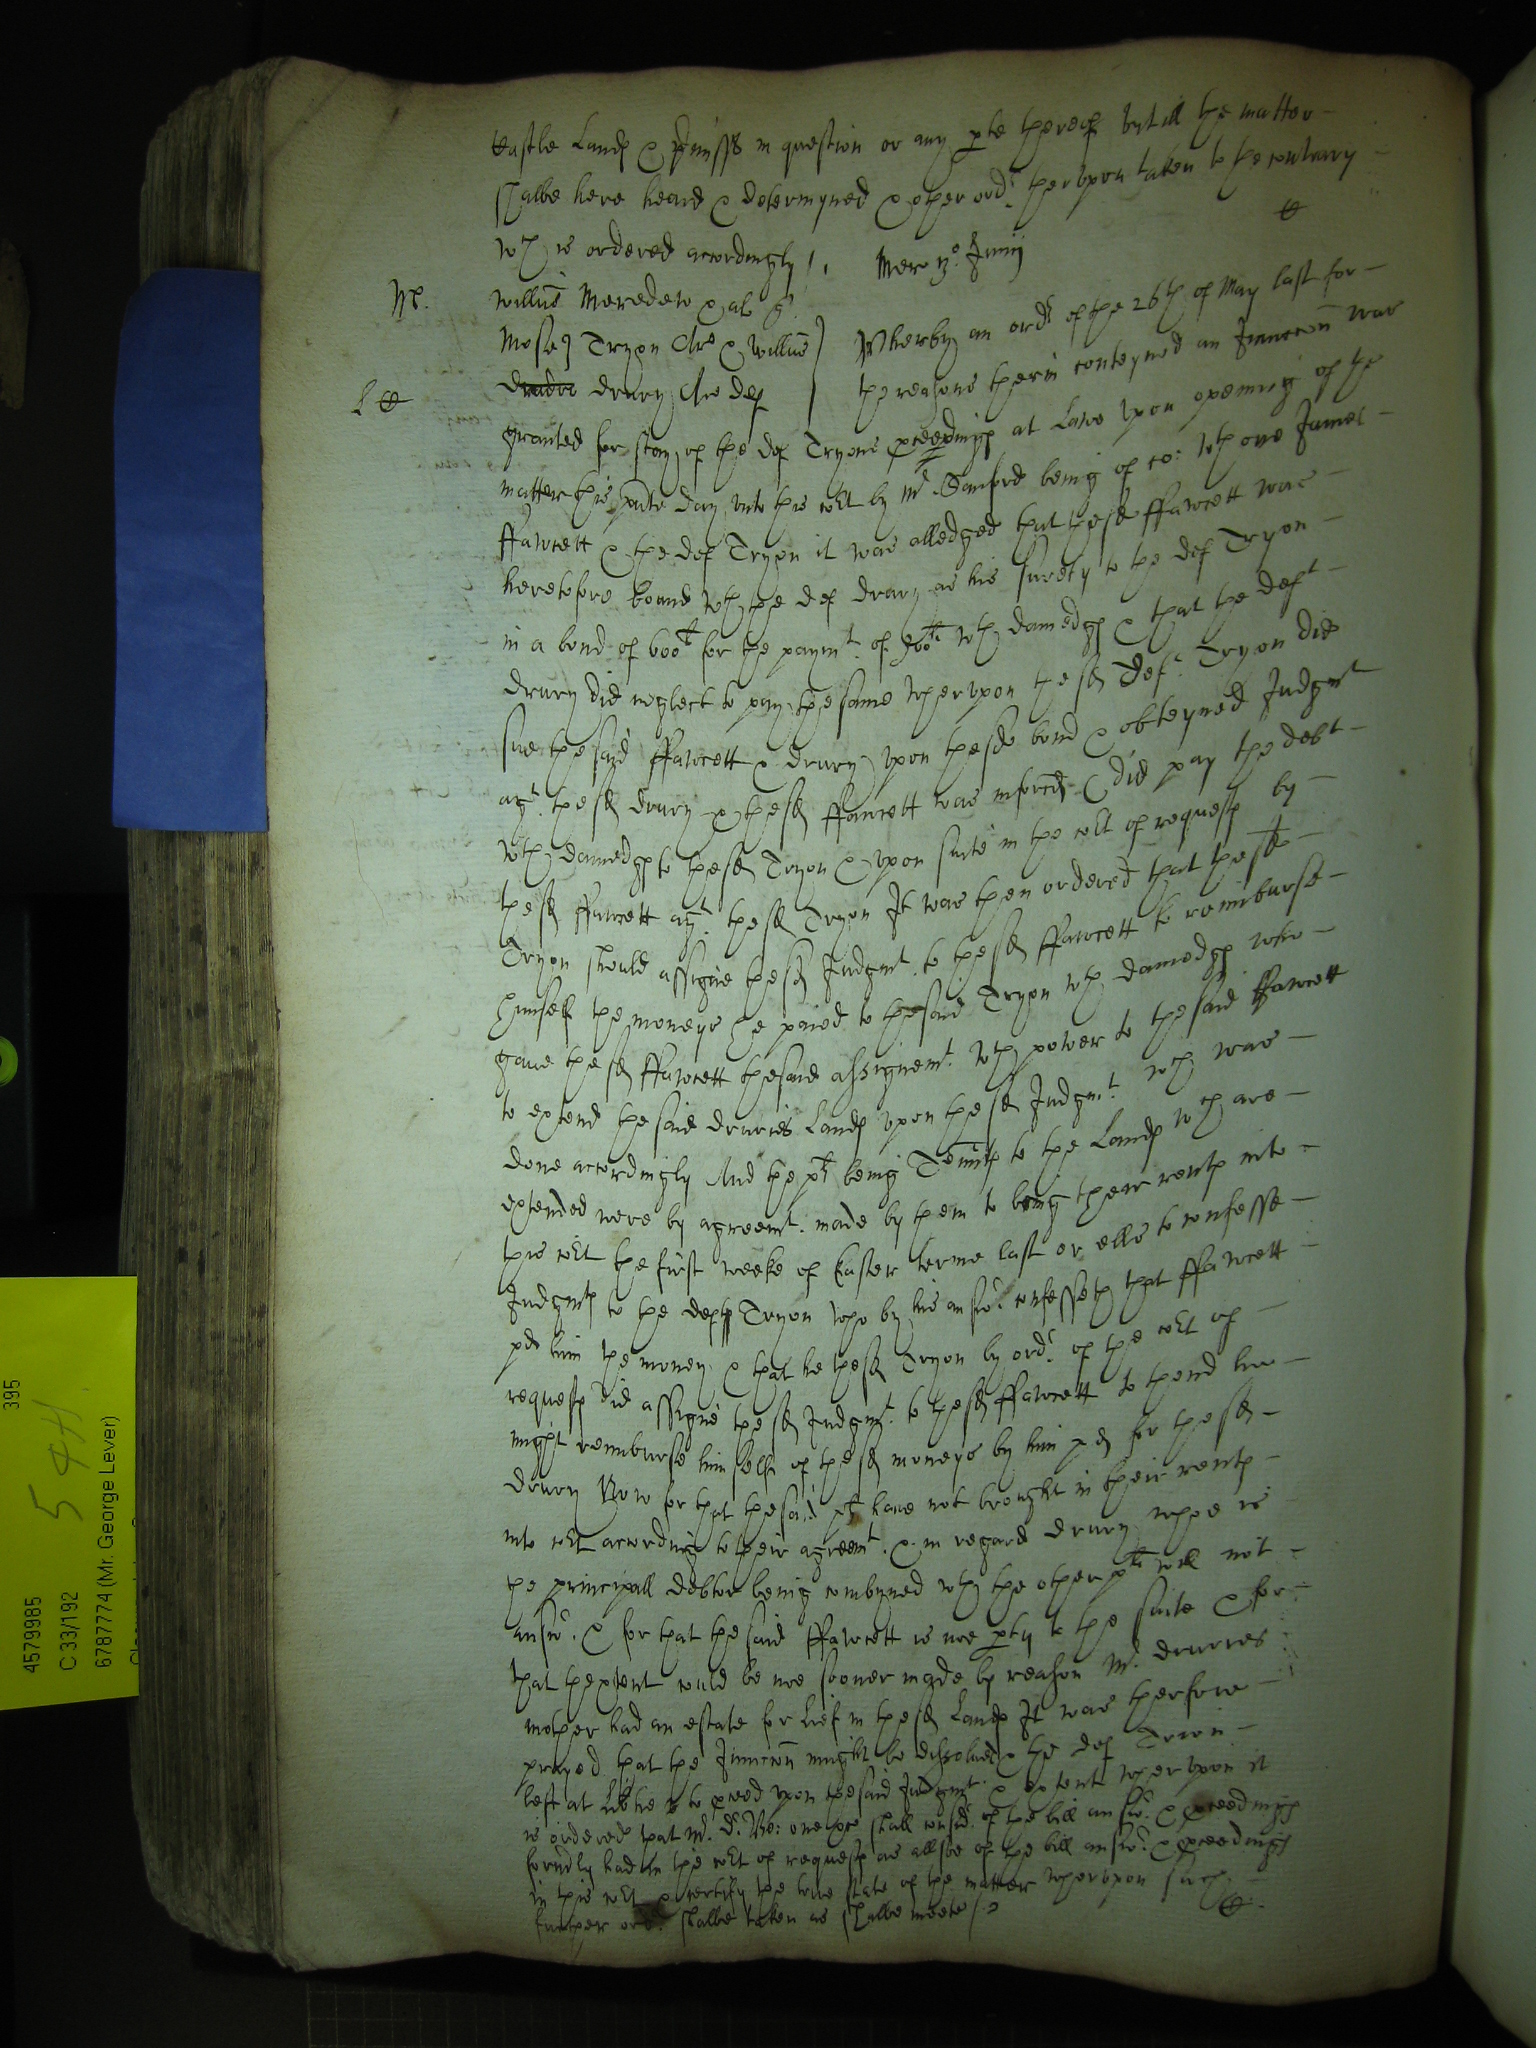 Castle Land & pmiss in question or any pte thereof untill the matter
shalbe here heard & determyned & other ord^r therupon taken to the contrary
w^ch is ordered accordingly / Merc 13° Junij
Willm̄ Meredew & al q^r
Moses Tryon Ar & Willm̄ } Wherby an ord^r of the 26th of May last for
Drury Ar def } the reasons therin conteyned an Iniunccon was
granted for stay of the def Tryons pceedings at Lawe upon opening of the
matter this pnte day unto this cot by M^r Sanford being of co: w^th one James
ffawcett & the def Tryon it was alledged that the sd ffawcett was
heretofore bound w^th the def Drury as his surety to the def Tryon
in a bond of 600^li for the paym^t of 300^li w^th damedgs & that the def^t
Drury did neglect to pay the same wherupon the sd Def^t Tryon did
sue the said ffawcett & Drury upon the sd bond & obteyned Judgm^t
ag^t the sd Drury & the sd ffawcett was inforced & did pay the debt
w^th damedgs to the sd Tryon & upon suite in the cot of requests by
the sd ffawcett ag^t the sd Tryon It was then ordered that the sd
Tryon should assigne the sd Judgm^t to the sd ffawcett to reimburse
himself the moneys he paied to the said Tryon w^th damedgs who
gaue the sd ffawcett the said assignem^t w^th power to the said ffawcett
to extend the said Druries Lands upon the sd Judgm^t w^ch was
done accordingly And the p^ts being Tennts to the Lands w^ch are
extended were by agreem^t made by them to bring their rents into
this cot the first weeke of Easter terme last or ells to confesse
Judgmts to the def Tryon who by his answ^r confesseth that ffawcett
pd him the money & that he the sd Tryon by ord^r of the cot of
requests did assigne the sd Judgm^t to the sd ffawcett to thend hee
might reimburse himselfe of the sd moneys by him pd for the sd
Drury Now for that the said p^ts haue not brought in their rents
into cot according to their agreem^t & in regard Drury who is
the principall debtor being combyned w^th the other p^ts will not
answ^r & for that the said ffawcett is noe pty to the suite & for
that thextent could be noe sooner made by reason M^r Druries
mother had an estate for Lief in the sd Lands It was therfore
prayed that the Iniunccon might be dissolued & the def Trion
left at Libtie to pceed upon the said Judgm^t & extent wherupon it
is ordered that M^r D^r one &c shall consid^r of the bill answ^r & pceedings
formly had in the cot of requests as allsoe of the bill answ^r & pceedings
in this cot & certify the true state of the matter wherupon such
further ord^r shalbe taken as shalbe meete /
395
54H
4579985
C 33/192
6787774 (Mr. George Lever)